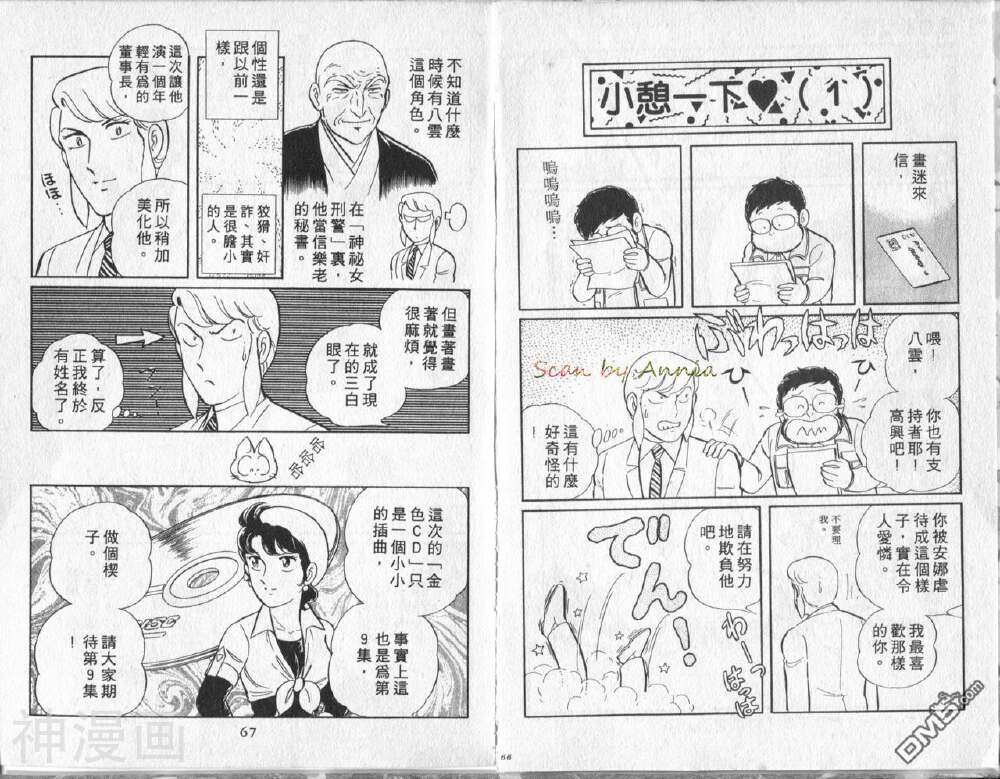 小憩一下♥(1)
畫迷來
信,
嗚嗚嗚嗚…
喂!
八雲,
你也有支
持者耶!
高興吧!
ぶわっはっはっは
ひー
ひー
這有什麼
好奇怪的
!
Scan by Annia
你被安娜虐
待成這個樣
子,實在令
人愛憐
我最喜
歡那樣
的你。
不要理
我。
請在努力
地欺負他
吧。
でん!
わーっ
はっはっ
66
不知道什麼
時候有八雲
這個角色。
在「神祕女
刑警」裏,
他當信樂老
的秘書。
個性還是
跟以前一
樣,
狡猾、奸
詐、其實
是很膽小
的人。
這次讓他
演一個年
輕有為的
董事長,
所以稍加
美化他。
ほほ…
但畫著畫
著就覺得
很麻煩,
就成了現
在的三白
眼了。
算了,反
正我終於
有姓名了。
哈
哈
哈
這次的「金
色CD」只
是一個小小
的插曲,
事實上這
也是為第
9集,
做個楔
子。
請大家期
待第9集
!
67
神漫画
DM5.com